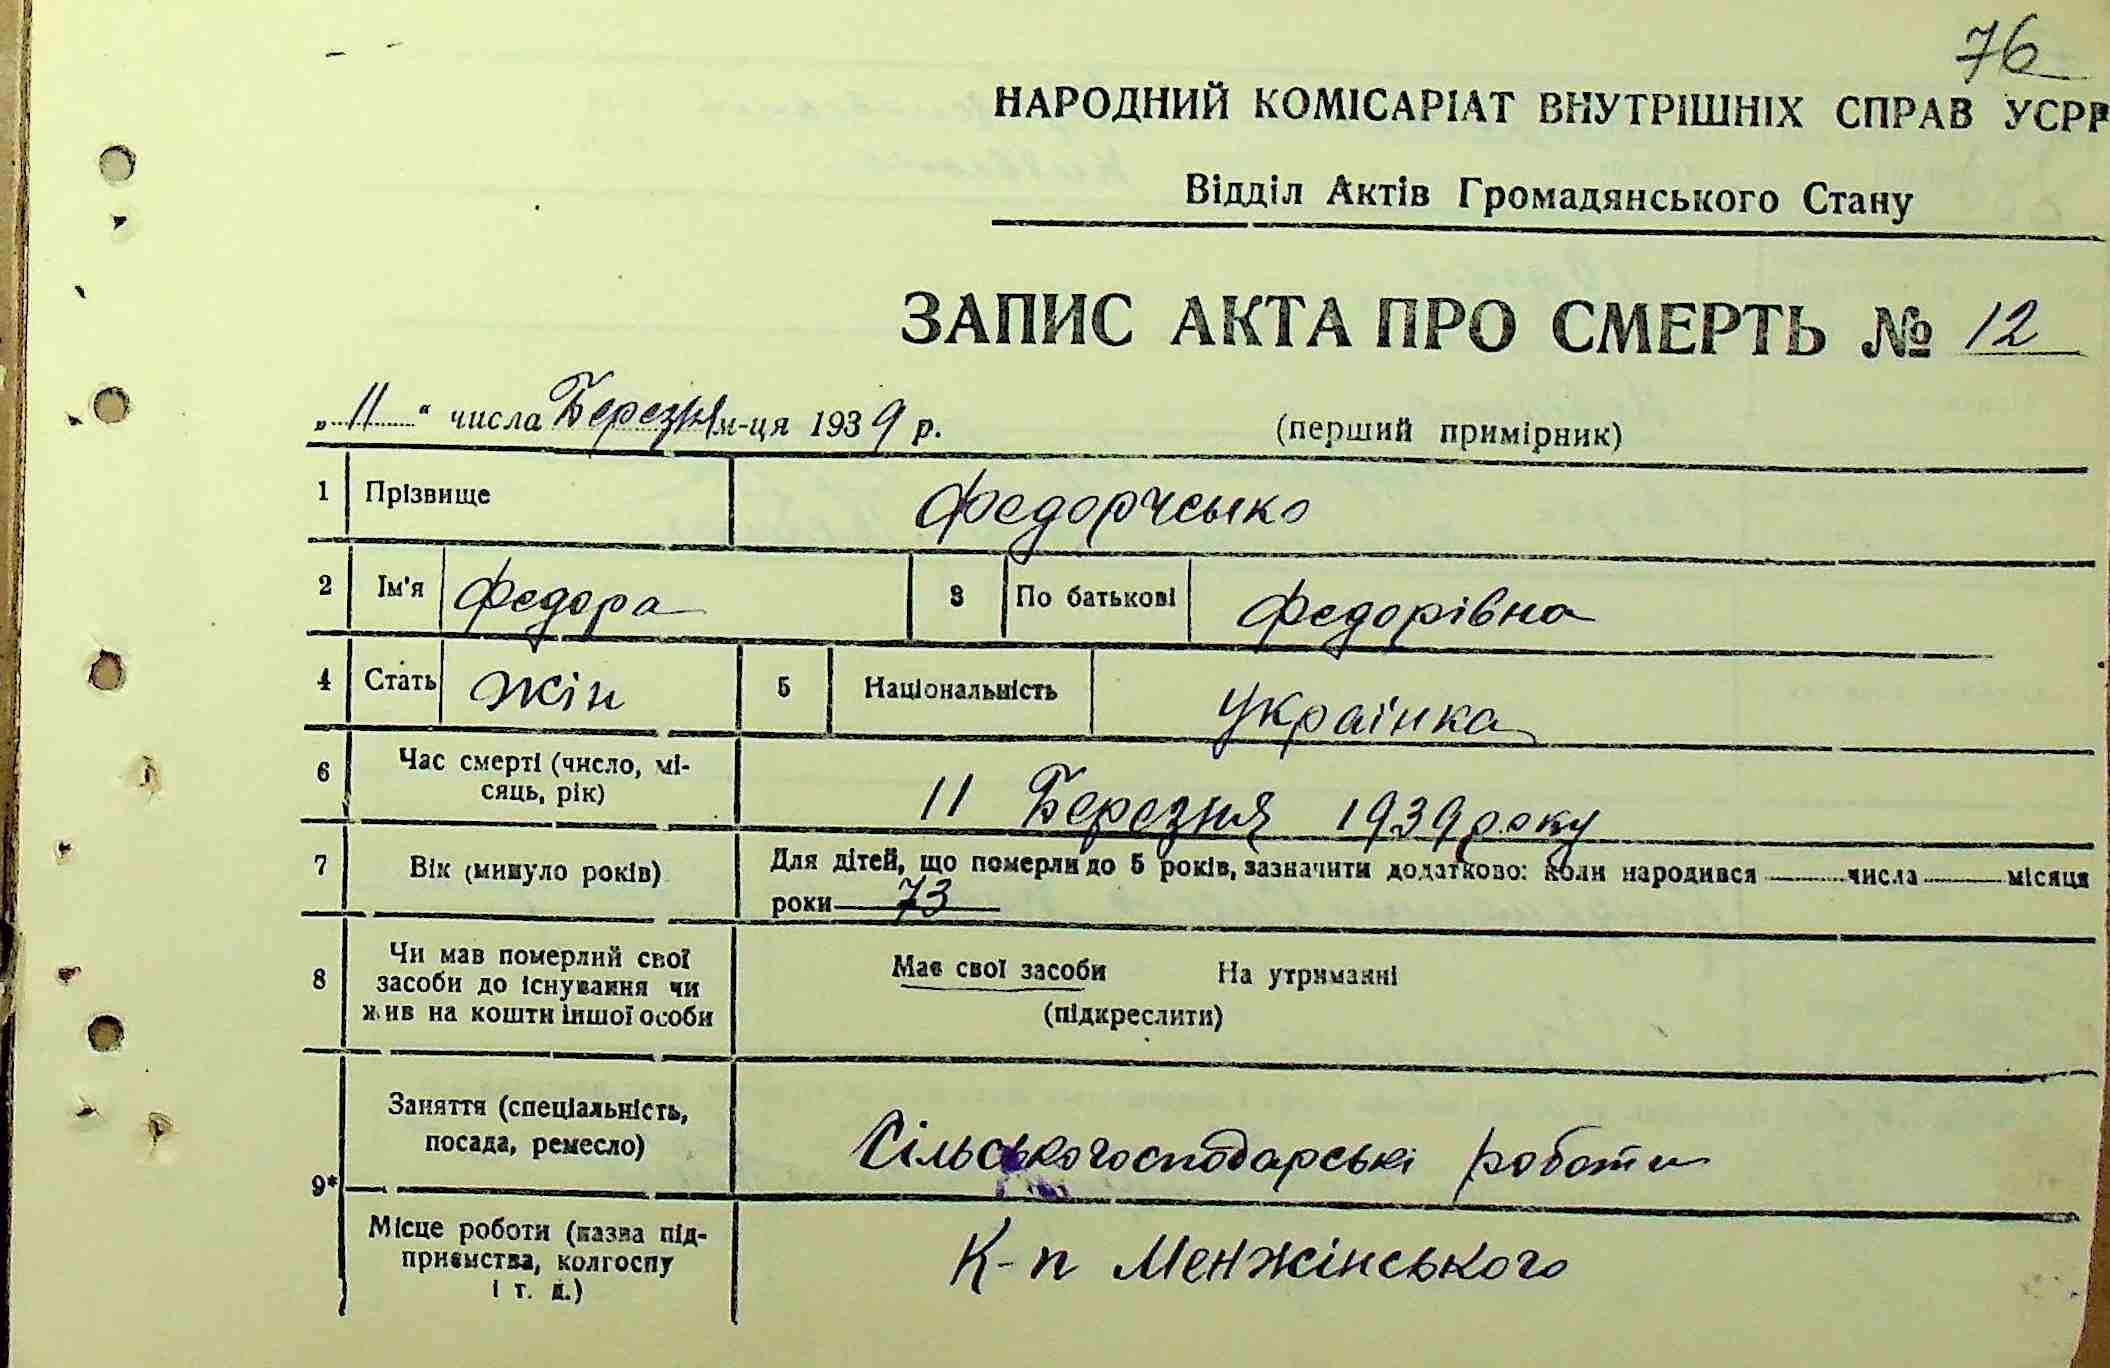 76
НАРОДНИЙ КОМІСАРІАТ ВНУТРІШНІХ СПРАВ УСРР
Відділ Актів Громадянського Стану
ЗАПИС АКТА ПРО СМЕРТЬ № 12
„11“ числа Березня м-ця 1939 р. (перший примірник)
1 Прізвище Федорченко
2 Ім'я Федора 3 По батькові Федорівна
4 Стать жін 5 Національність Українка
6 Час смерті (число, мі-
сяць, рік) 11 Березня 1939 року
7 Вік (минуло років) Для дітей, що померли до 5 років, зазначити додатково: коли народився числа місяця
роки 73
8 Чи мав померлий свої
засоби до існування чи
жив на кошти іншої особи
Має свої засоби На утриманні
(підкреслити)
9* Заняття (спеціальність,
посада, ремесло) Сільськогосподарські роботи
Місце роботи (назва під-
приємства, колгоспу
і т. д.) К-п Менжінського